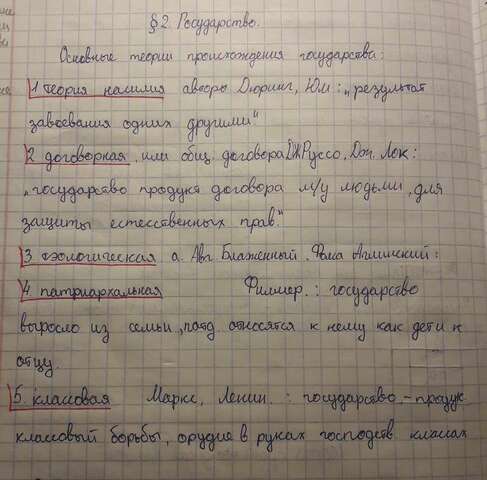 §2. Государство.
Основные теории происхождения государства:
1 теория насилия авторы Дюринг, Юм: „результат
завоевания одних другими"
2 договорная, или общ. договора ДЖРуссо, Дж. Лок:
„государство продукт договора м/у людьми, для
защиты естесственных прав."
3 теологическая а. Авг. Блаженный, Фома Аглинский:
4. патриархальная Филмер.: государство
выросло из семьи, относятся к нему как дети к
отцу.
5. классовая Маркс, Ленин.: государство - продук
классовый борьбы, орудие в руках господств классах